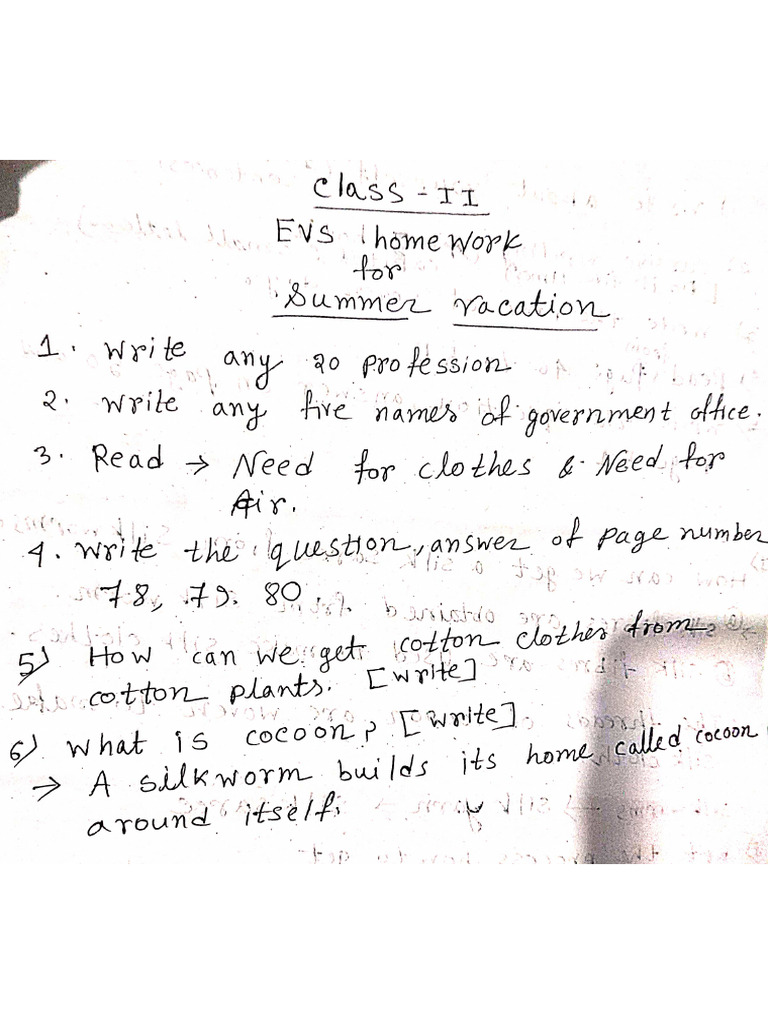 Class - II
EVS homework
for
Summer vacation
1. Write any 20 profession
2. Write any five names of government office.
3. Read → Need for clothes & Need for
Air.
4. Write the question, answer of page number
78, 79. 80.
5) How can we get cotton clothes from
cotton plants. [Write]
6) What is cocoon? [Write]
→ A silkworm builds its home called cocoon
around itself.